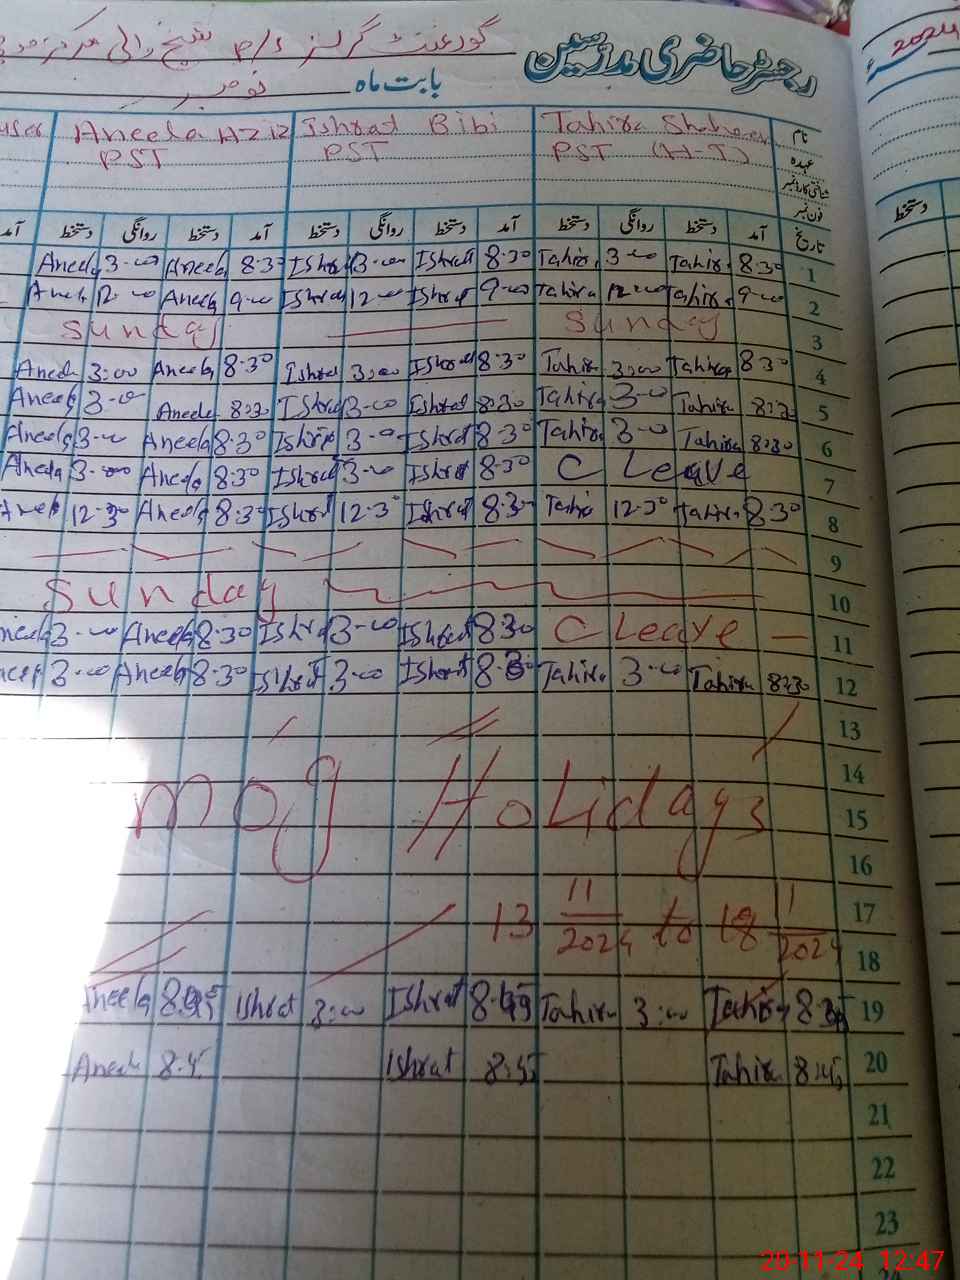 رجسٹر حاضری مدرسین گورنمنٹ گرلز P/S شیخ والی مرکز
بابت ماہ نومبر
2024
نام Tahira Shaheen Ishrat Bibi Aneela Aziz
عہدہ PST (H-T) PST PST
شناختی کارڈ نمبر
فون نمبر
تاریخ آمد دستخط روانگی دستخط آمد دستخط روانگی دستخط آمد دستخط روانگی دستخط آمد
دستخط
Aneela 3-00 Aneela 8.30 Ishrat 3-00 Ishrat 8.30 Tahira 3-00 Tahira 8.30 1
Aneela 12-00 Aneela 9-00 Ishrat 12-00 Ishrat 9-00 Tahira 12-00 Tahira 9-00 2
Sunday Sunday 3
Aneela 3:00 Aneela 8.30 Ishrat 3:00 Ishrat 8.30 Tahira 3:00 Tahira 8.30 4
Aneela 3-00 Aneela 8:30 Ishrat 3-00 Ishrat 8:30 Tahira 3-00 Tahira 8:30 5
Aneela 3-00 Aneela 8.30 Ishrat 3-00 Ishrat 8.30 Tahira 3-00 Tahira 8:30 6
Aneela 3-00 Aneela 8.30 Ishrat 3-00 Ishrat 8.30 C Leave 7
Aneela 12.30 Aneela 8.30 Ishrat 12.30 Ishrat 8.30 Tahira 12.30 Tahira 8.30 8
9
Sunday 10
Aneela 3-00 Aneela 8.30 Ishrat 3-00 Ishrat 8.30 C Leave 11
Aneela 3-00 Aneela 8.30 Ishrat 3-00 Ishrat 8.30 Tahira 3-00 Tahira 8:30 12
13
14
smog Holidays 15
16
13 11/2024 to 18 11/2024 17
18
Aneela 8.45 Ishrat 3:00 Ishrat 8.45 Tahira 3:00 Tahira 19
Aneela 8.45 Ishrat 8:45 Tahira 8:45 20
21
22
23
20-11-24 12:47